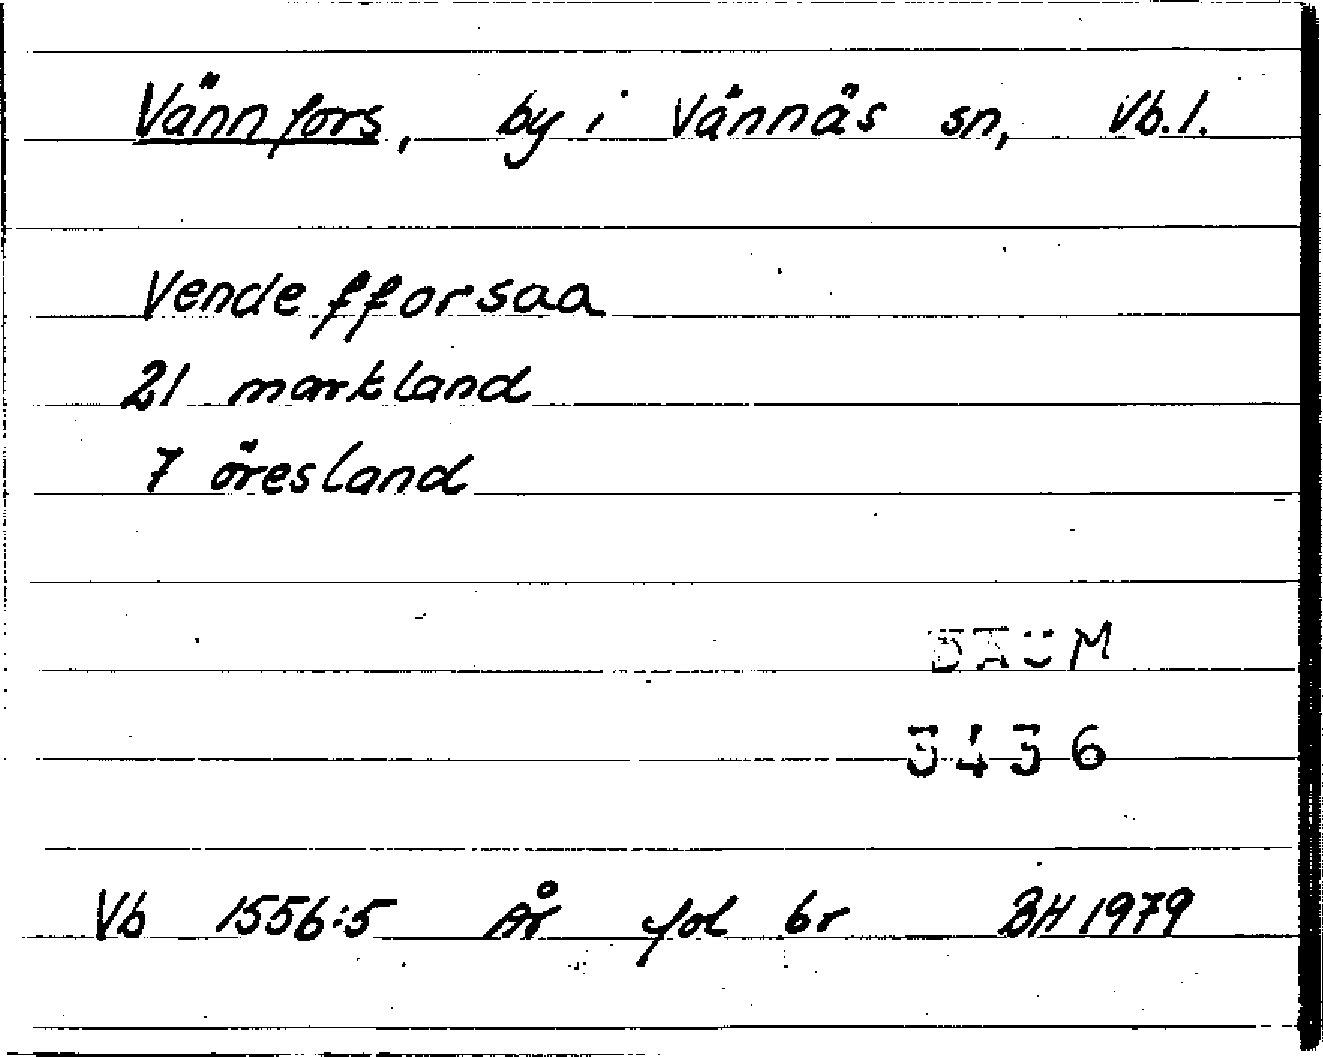 Vännfors, by i Vännäs sn, Vb.l.
Vende fforsaa
21 markland
7 öresland
DAUM
3436
Vb 1556:5 År fol 6r BH 1979